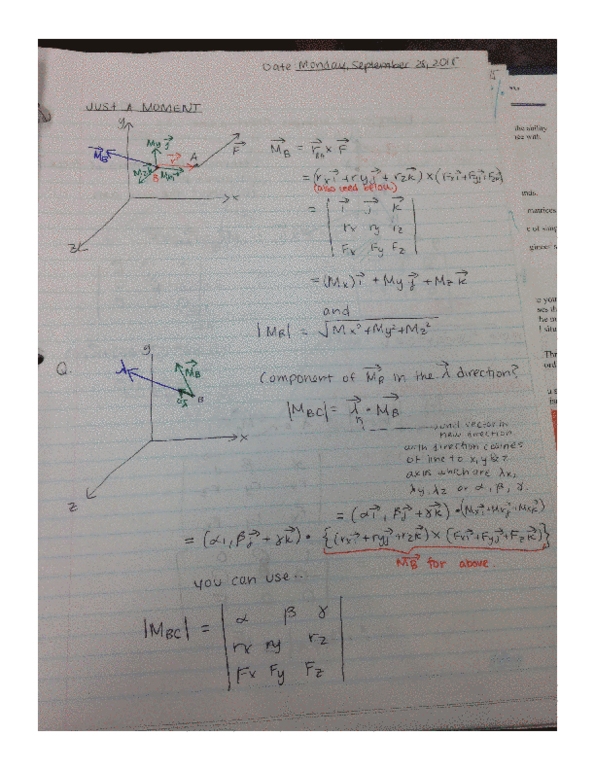 Date Monday, September 28, 2015
JUST A MOMENT
y
My j
A
F
M_B
r
Mz k
B
Mx i
x
z
M_B = r_BA x F
= (rx i + ry j + rz k) × (Fx i + Fy j + Fz k)
(also used below)
= | i j k |
rx ry rz
Fx Fy Fz
= (Mx) i + My j + Mz k
and
|M_B| = √Mx² + My² + Mz²
Q.
y
λ
M_B
B
x
z
Component of M_B in the λ direction?
|M_BC| = λ • M_B
unit vector in
new direction
with direction cosines
of line to x, y & z
axis which are λx,
λy, λz or α, β, γ.
= (αi, βj + γk) • (Mxi + Myj + Mxk)
= (αi, βj + γk) • {(rxi + ryj + rzk) × (Fxi + Fyj + Fzk)}
M_B for above
you can use..
|M_BC| = | α β γ |
rx ry rz
Fx Fy Fz
the ability
matrices